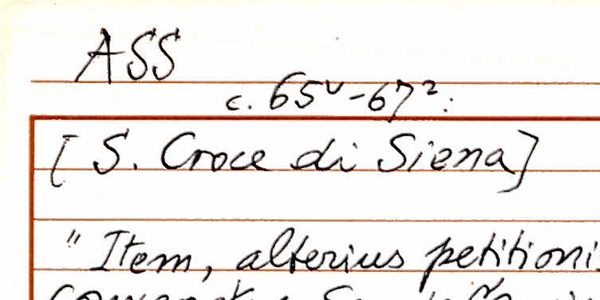 ASS
c. 65v-67r:
[S. Croce di Siena]
"Item, alterius petitionis